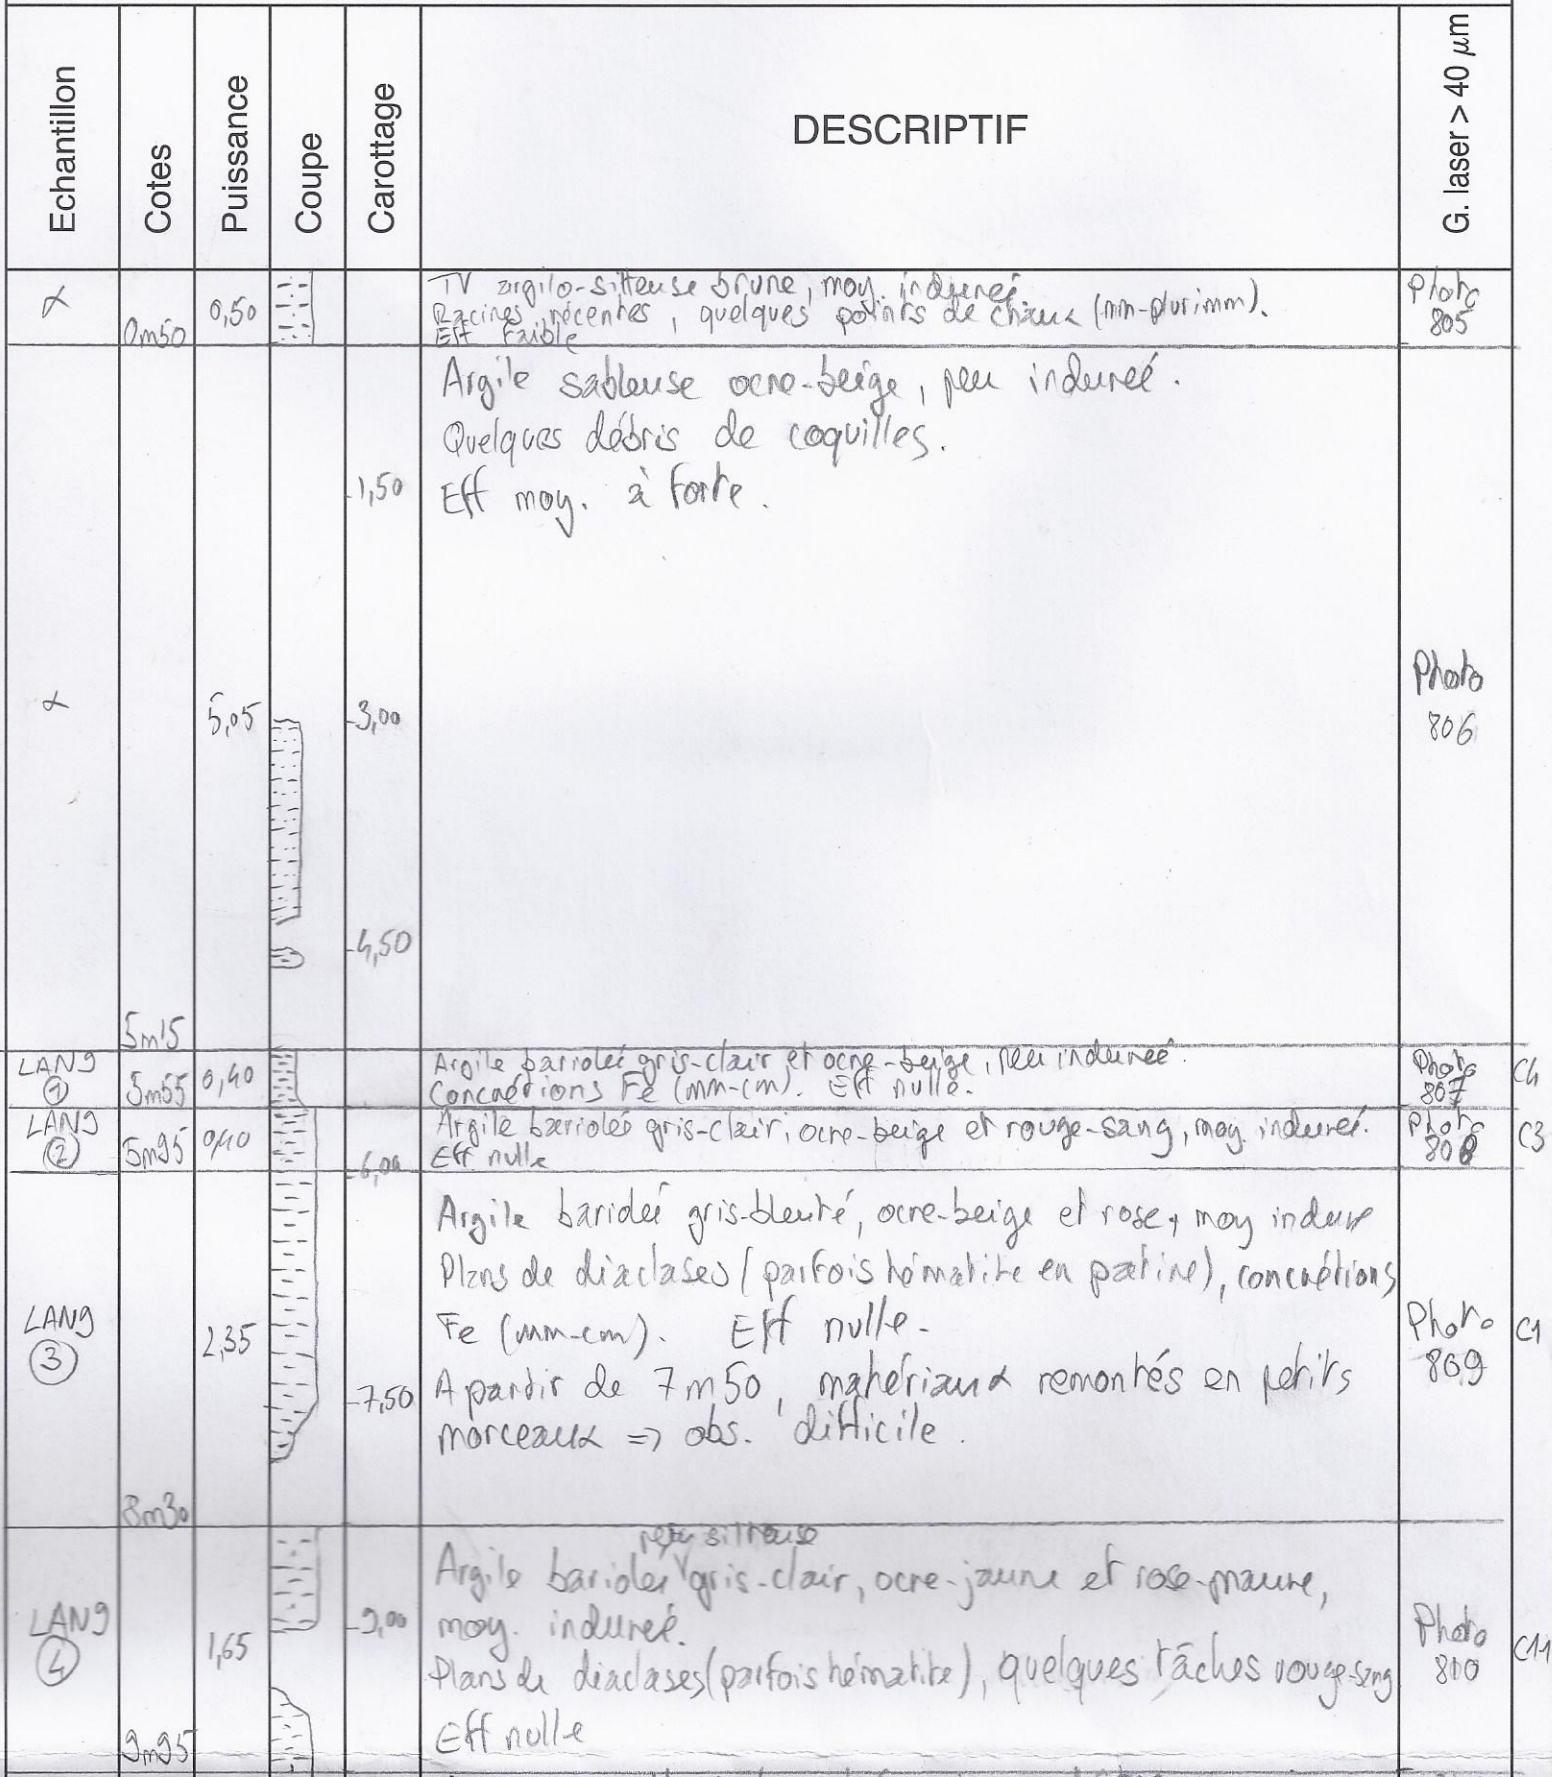 Echantillon
Cotes
Puissance
Coupe
Carottage
DESCRIPTIF
G. laser > 40 µm
0m50
0,50
TV argilo-silteuse brune, moy. indurée.
Racines récentes, quelques points de chaux (mm-plurimm).
Eff faible
Photo
805
Argile sableuse ocre-beige, peu indurée.
Quelques débris de coquilles.
Eff moy. à forte.
1,50
5,05
3,00
4,50
5m15
Photo
806
LAN9
1
5m55
0,40
Argile bariolée gris-clair et ocre-beige, peu indurée.
Concrétions Fe (mm-cm). Eff nulle.
Photo
807
C4
LAN9
2
5m95
0,40
6,00
Argile bariolée gris-clair, ocre-beige et rouge-sang, moy. indurée.
Eff nulle
Photo
808
C3
LAN9
3
8m30
2,35
7,50
Argile bariolée gris-bleuté, ocre-beige et rose, moy indure
Plans de diaclases (parfois hématite en patine), concrétions
Fe (mm-cm). Eff nulle.
A partir de 7m50, matériaux remontés en petits
morceaux => obs. difficile.
Photo
809
C1
LAN9
4
9m95
1,65
9,00
silteuse
Argile bariolée gris-clair, ocre-jaune et rose-mauve,
moy. indurée.
Plans de diaclases (parfois hématite), quelques tâches rouge-sang
Eff nulle
Photo
810
C11